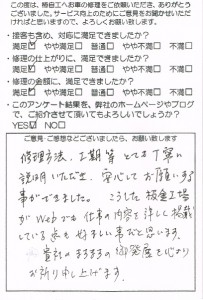 この度は、極自工へお車の修理をご依頼いただき、ありがとう
ございました。サービス向上のためにご意見をお聞かせいただ
ければと思いますので、よろしくお願い致します。
・接客も含め、対応に満足できましたか?
満足☑ やや満足□ 普通□ やや不満□ 不満□
・修理の仕上がりに、満足できましたか?
満足☑ やや満足□ 普通□ やや不満□ 不満□
・修理の金額に、満足できましたか?
満足☑ やや満足□ 普通□ やや不満□ 不満□
・このアンケート結果を、弊社のホームページやブログ
で、ご紹介させて頂いてもよろしいでしょうか?
YES☑ NO□
ご意見・ご感想などございましたら、お願い致します
修理方法、工期等 とても丁寧に
説明いただき、安心してお願いする
事ができました。こうした板金工場
がWebでも仕事の内容を詳しく掲載
している点も好ましい事だと思います。
貴社のますますの御発展を心より
お祈り申し上げます。